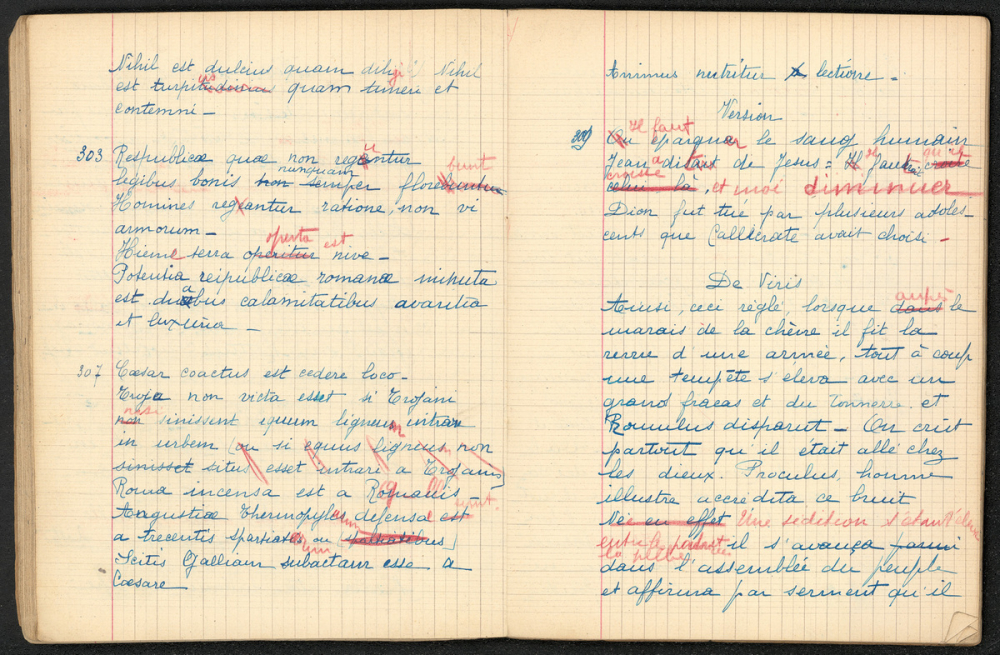 Nihil est dulcius quam diligi Nihil
est turpius quam timeri et
contemni -
303 Respublicæ quæ non reguntur
nunquam sunt
legibus bonis non semper florebuntur
Homines regantur ratione, non vi
armorum -
operta est
Hieme terra operitur nive -
Potentia reipublicæ romanæ minuta
est duabus calamitatibus avaritia
et luxuria -
307 Cæsar coactus est cedere loco -
Troja non victa esset si Trojani
nisi
non sinissent equum ligneum intrare
in urbem (ou si equus ligneus non
sinisset situs esset intrare a Trojanis)
Roma incensa est a Gallis
Angustiæ Thermopylarum defensæ sunt
a trecentis Spartiatis ou
Scitis Galliam subactam esse a
Cæsare
Animus nutritur lectione -
Version
309 Il faut
On épargner le sang humain
Jean a dit de Jesus : Il faut qu'il
croisse
celui là, et moi diminuer
Dion fut tué par plusieurs adoles-
cents que Callicrate avait choisi -
De Viris
auprès
Ainsi, ceci réglé, lorsque dans le
marais de la chèvre il fit la
revue d'une armée, tout à coup
une tempête s'eleva avec un
grand fracas et du tonnerre et
Romulus disparut - On crut
partout qu'il était allé chez
les dieux. Proculus, homme
illustre accrédita ce bruit
Née en effet Une sédition s'étant élevée
entre le
la plèbe il s'avança parmi
dans l'assemblée du peuple
et affirma par serment qu'il